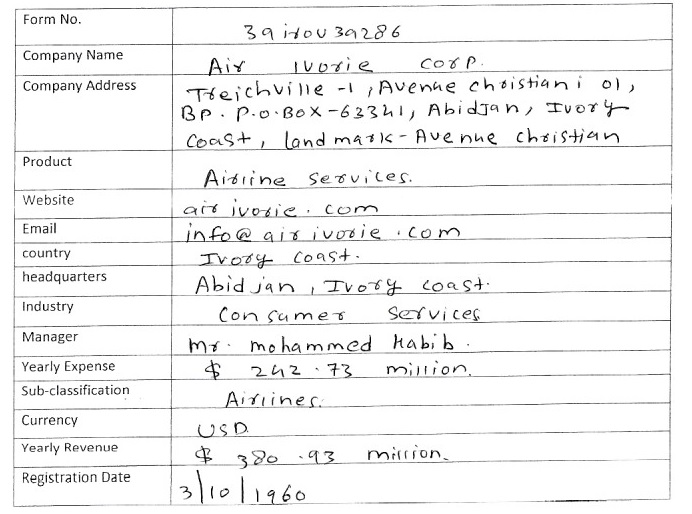 Form No. 39irov39286
Company Name Air Ivorie Corp.
Company Address Treichville -1, Avenue christiani 01,
BP. P.O.BOX-63341, Abidjan, Ivory
Coast, landmark-Avenue christian
Product Airline services.
Website airivorie.com
Email info@airivorie.com
country Ivory coast.
headquarters Abidjan, Ivory coast.
Industry Consumer services
Manager Mr. mohammed Habib.
Yearly Expense $ 242.73 million.
Sub-classification Airlines.
Currency USD
Yearly Revenue $ 380.93 million.
Registration Date 3/10/1960